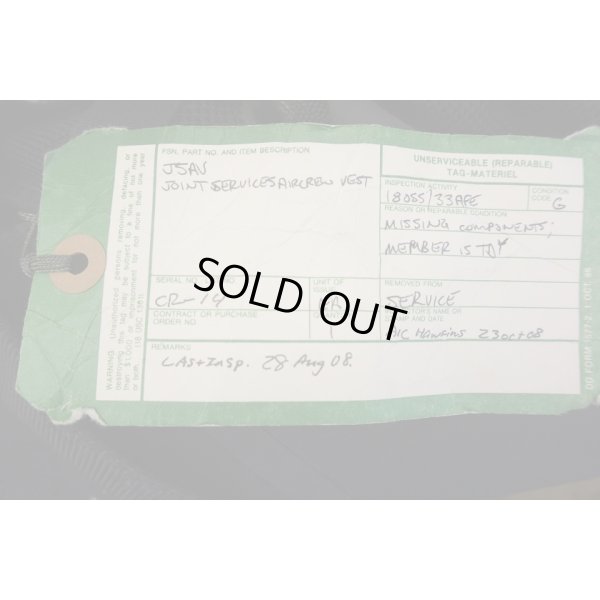 FSN, PART NO. AND ITEM DESCRIPTION
JSAV
JOINT SERVICES AIRCREW VEST
UNSERVICEABLE (REPARABLE)
TAG-MATERIEL
INSPECTION ACTIVITY
18OSS/33APE
CONDITION
CODE
G
REASON OR REPARABLE CONDITION
MISSING COMPONENTS;
MEMBER IS TDY
SERIAL
CR-14
UNIT OF
REMOVED FROM
SERVICE
CONTRACT OR PURCHASE
ORDER NO
1
NAME OR
AND DATE
Hawkins 23 oct 08
REMARKS
Last Insp. 28 Aug 08.
WARNING: Unauthorized persons removing, defacing, or
destroying this tag may be subject to a fine of not more
than $1,000 or imprisonment for not more than one year
or both. (18 USC 1361)
DD FORM 1577-2, 1 OCT 66
SOLD OUT